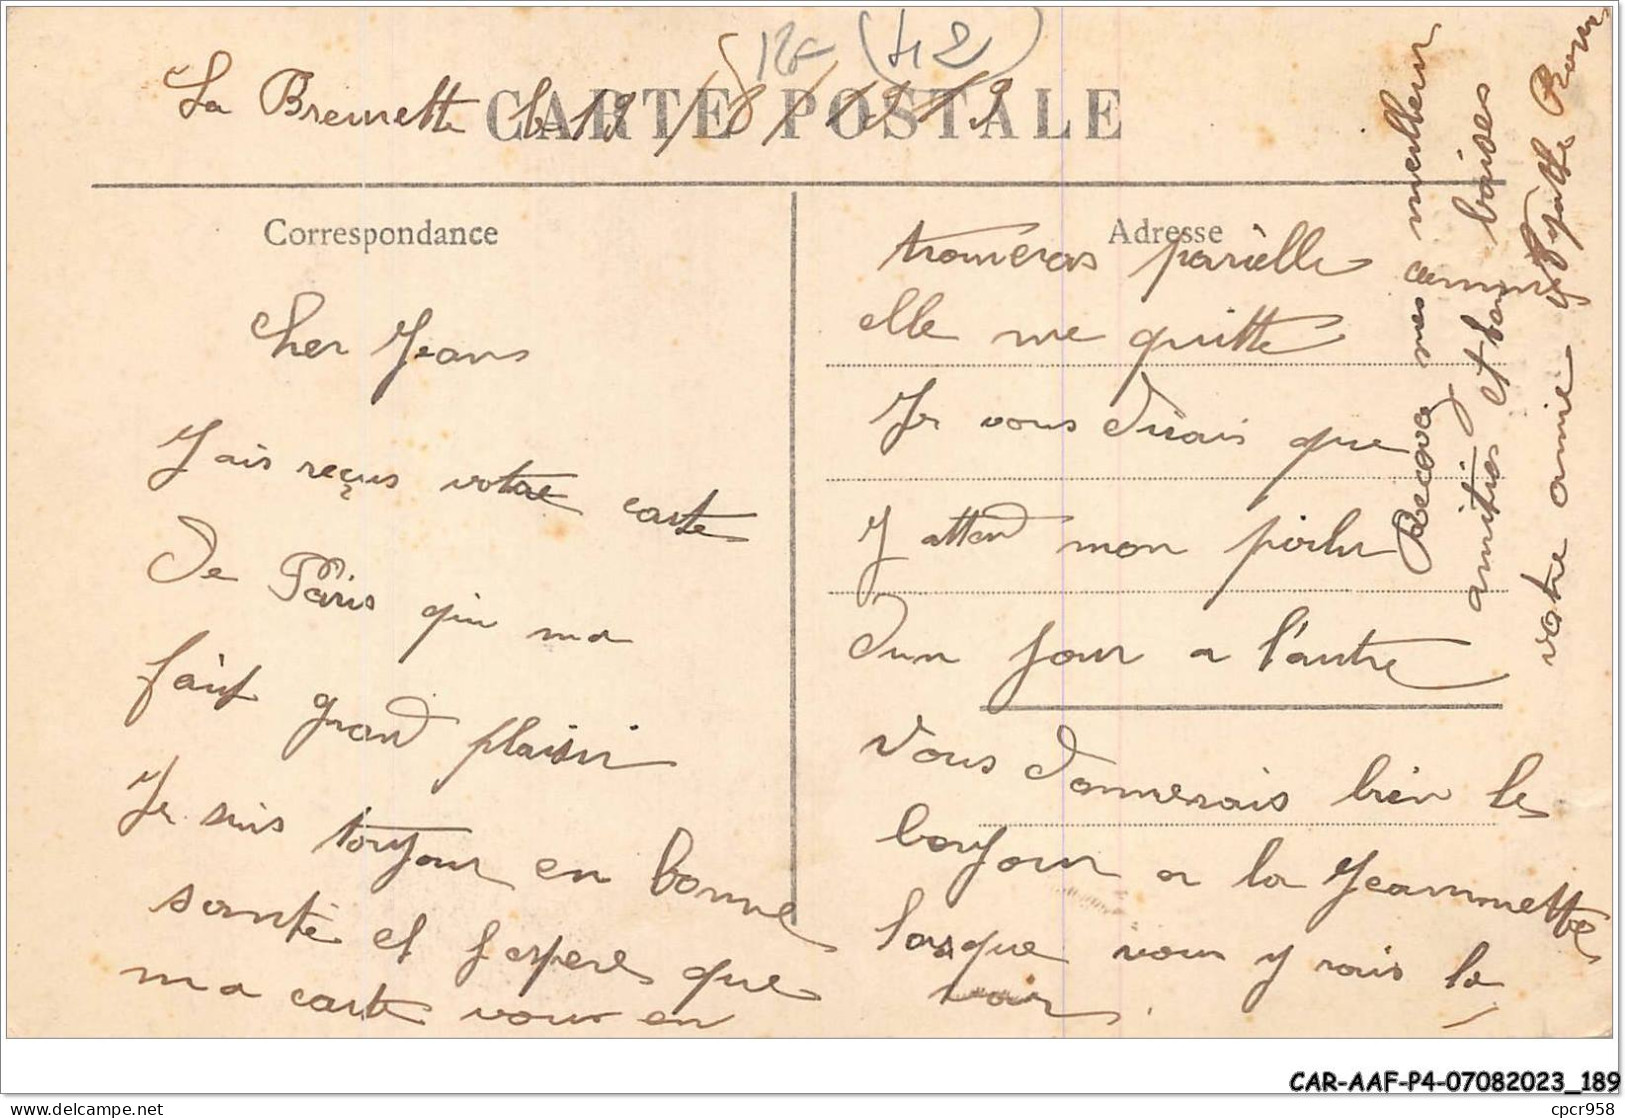 (42)
La Bremette le 19 / 8 / 1919
CARTE POSTALE
Correspondance
Adresse
Cher Jeans
J ais reçus votre carte
De Paris qui ma
fait grand plaisir
Je suis toujour en bonne
santé et j espere que
ma carte vour en
trouveras parielle
elle me quitte
Je vous dirais que
J attend mon poilu
Dun jour a l'autre
Vous donnerais bien le
bonjour a la Jeammette
lorsque vour y rais la
voir.
Recevez mes meilleur
amitiés et bon baises
votre amie
CAR-AAF-P4-07082023_189
delcampe.net
cpcr958